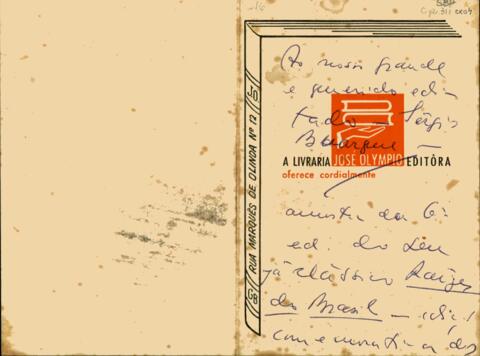 Ao nosso grande
e querido edi-
tado — Sérgio
Buarque —
A LIVRARIA JOSÉ OLYMPIO EDITÔRA
oferece cordialmente
amostra da 6ª
ed. do seu
já clássico Raízes
do Brasil — edição
comemorativa dos
RUA MARQUÊS DE OLINDA Nº 12